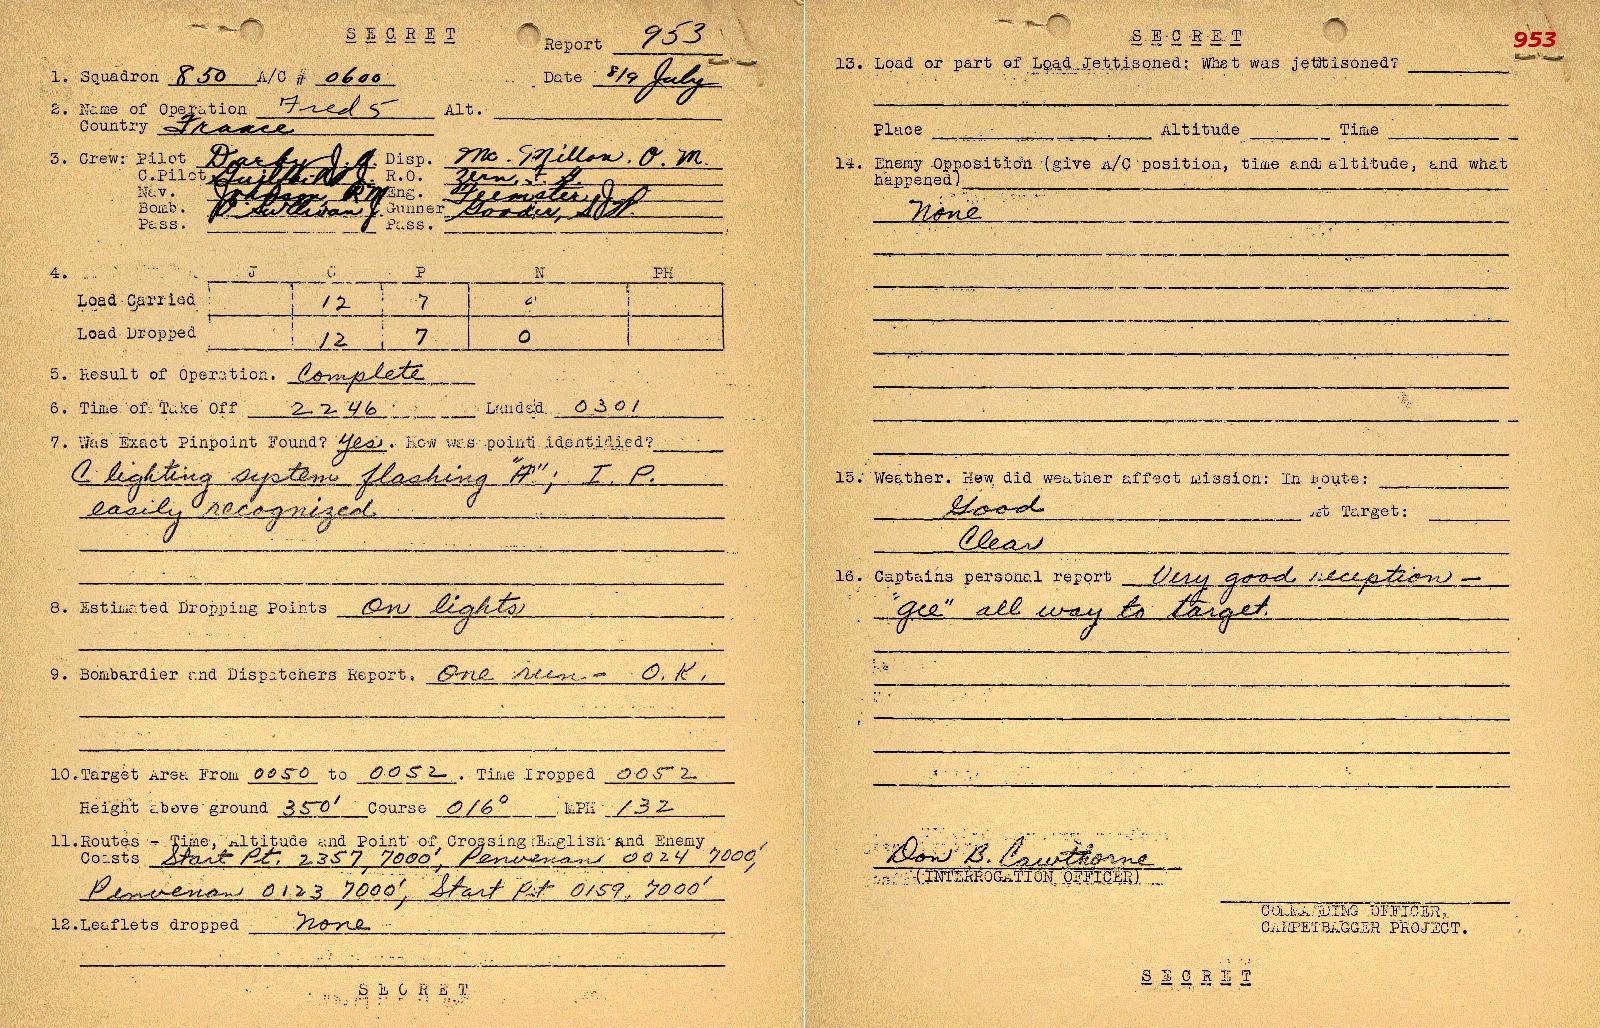 SECRET
Report 953
1. Squadron 850 A/C # 0600 Date 8/9 July
2. Name of Operation Fred 5 Alt.
Country France
3. Crew: Pilot Darby J. A. Disp. Mc. Millon. O. M.
C.Pilot R.O. Zern, F. G
Nav. R M Eng. Feemster,
Bomb. O Sullivan J. Gunner Gooder, S W.
Pass. Pass.
4. J C P N PH
Load Carried 12 7
Load Dropped 12 7 0
5. Result of Operation. Complete
6. Time of Take Off 2246 Landed 0301
7. Was Exact Pinpoint Found? Yes. How was point identidied?
C lighting system flashing "A"; I. P.
easily recognized
8. Estimated Dropping Points On lights
9. Bombardier and Dispatchers Report. One run - O.K.
10.Target Area From 0050 to 0052. Time Dropped 0052
Height above ground 350' Course 016° MPH 132
11.Routes - Time, Altitude and Point of Crossing English and Enemy
Coasts Start Pt. 2357 7000', Penvenan 0024 7000',
Penvenan 0123 7000', Start Pt 0159, 7000'
12.Leaflets dropped None
SECRET
SECRET
953
13. Load or part of Load Jettisoned: What was jettisoned?
Place Altitude Time
14. Enemy Opposition (give A/C position, time and altitude, and what
happened)
None
15. Weather. How did weather affect mission: In Route:
Good At Target:
Clear
16. Captains personal report Very good reception -
"gee" all way to target.
Don B. Cawthorne
(INTERROGATION OFFICER)
COMMANDING OFFICER,
CARPETBAGGER PROJECT.
SECRET